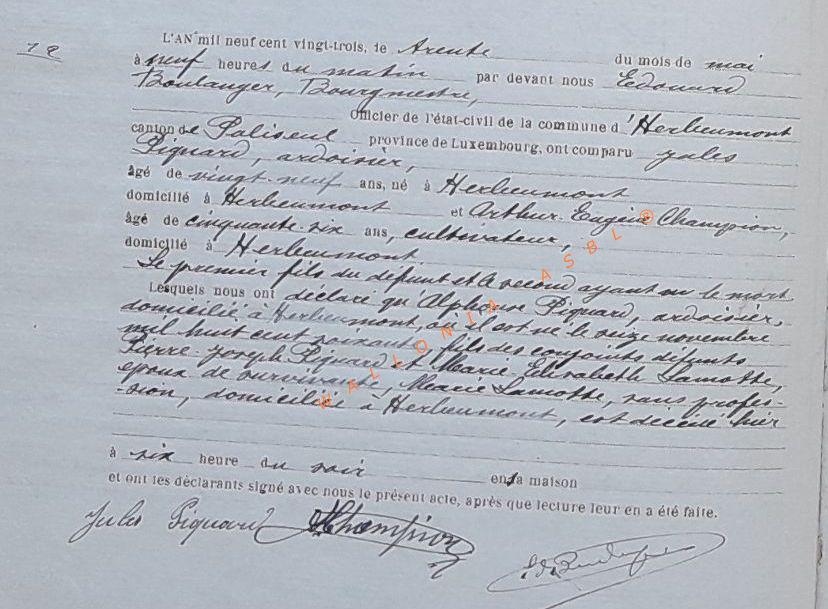 L'AN mil neuf cent vingt-trois, le trente du mois de mai
12
à neuf heures du matin par devant nous Edouard
Boulanger, Bourgmestre,
Officier de l'état-civil de la commune d'Herbeumont
canton de Paliseul province de Luxembourg, ont comparu Jules
Piquard, ardoisier,
âgé de vingt-neuf ans, né à Herbeumont
domicilié à Herbeumont et Arthur Eugène Champion,
âgé de cinquante-six ans, cultivateur,
domicilié à Herbeumont
Le premier fils du défunt et le second ayant vu le mort
Lesquels nous ont déclaré qu'Alphonse Piquard, ardoisier,
domicilié à Herbeumont, où il est né le seize novembre
mil huit cent soixante, fils des conjoints défunts
Pierre-Joseph Piquard et Marie-Elisabeth Lamotte,
époux de survivante, Marie Lamotte, sans profes-
sion, domiciliée à Herbeumont, est décédé hier
à six heure du soir en sa maison
et ont les déclarants signé avec nous le présent acte, après que lecture leur en a été faite.
Jules Piquard Champion
WALLONIA ASBL ©